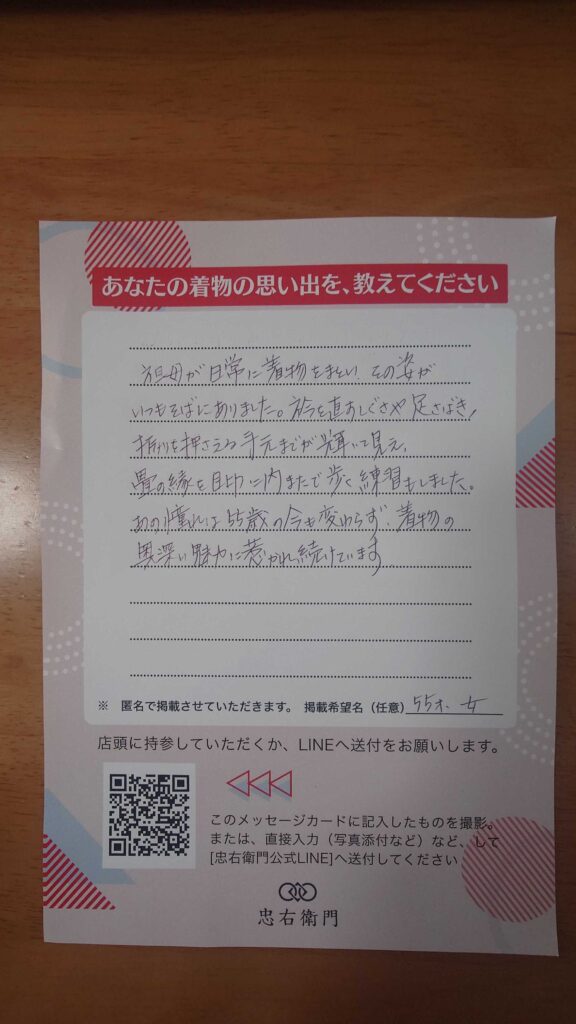 あなたの着物の思い出を、教えてください
祖母が日常に着物をまとい、その姿が
いつもそばにありました。衿を直すしぐさや足さばき、
袂を押さえる手元までが輝いて見え、
畳の縁を目印に内またで歩く練習もしました。
あの憧れは55歳の今も変わらず、着物の
奥深い魅力に惹かれ続けています
※ 匿名で掲載させていただきます。 掲載希望名（任意）55才、女
店頭に持参していただくか、LINEへ送付をお願いします。
このメッセージカードに記入したものを撮影。
または、直接入力（写真添付など）など、して
[忠右衛門公式LINE]へ送付してください
忠右衛門